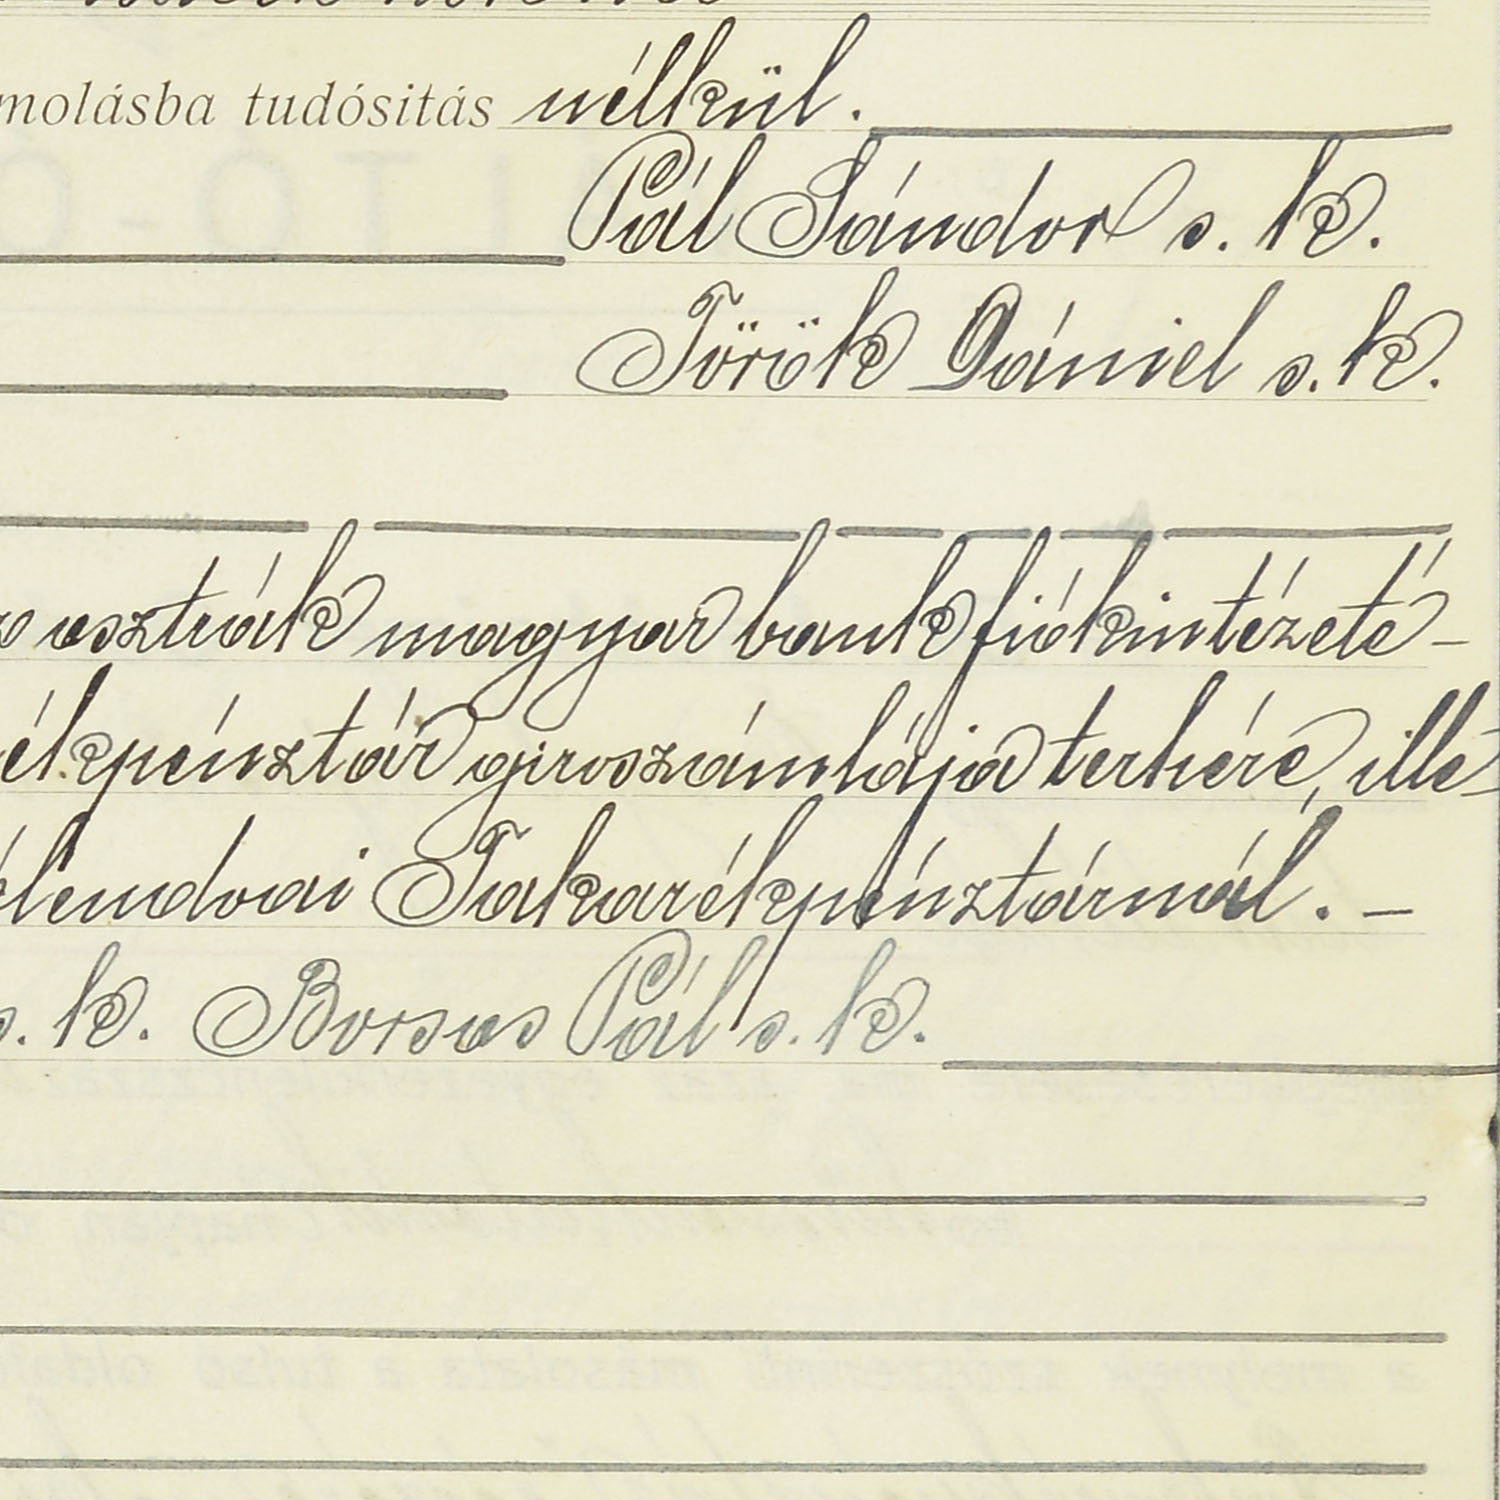 molásba tudósitás nélkül.
Pál Sándor s. k.
Török Dániel s. k.
osztrák magyar bank fiókintézeté-
ékpénztár giroszámlája terhére, ille-
lendvai Takarékpénztárnál. –
s. k. Borsos Pál s. k.